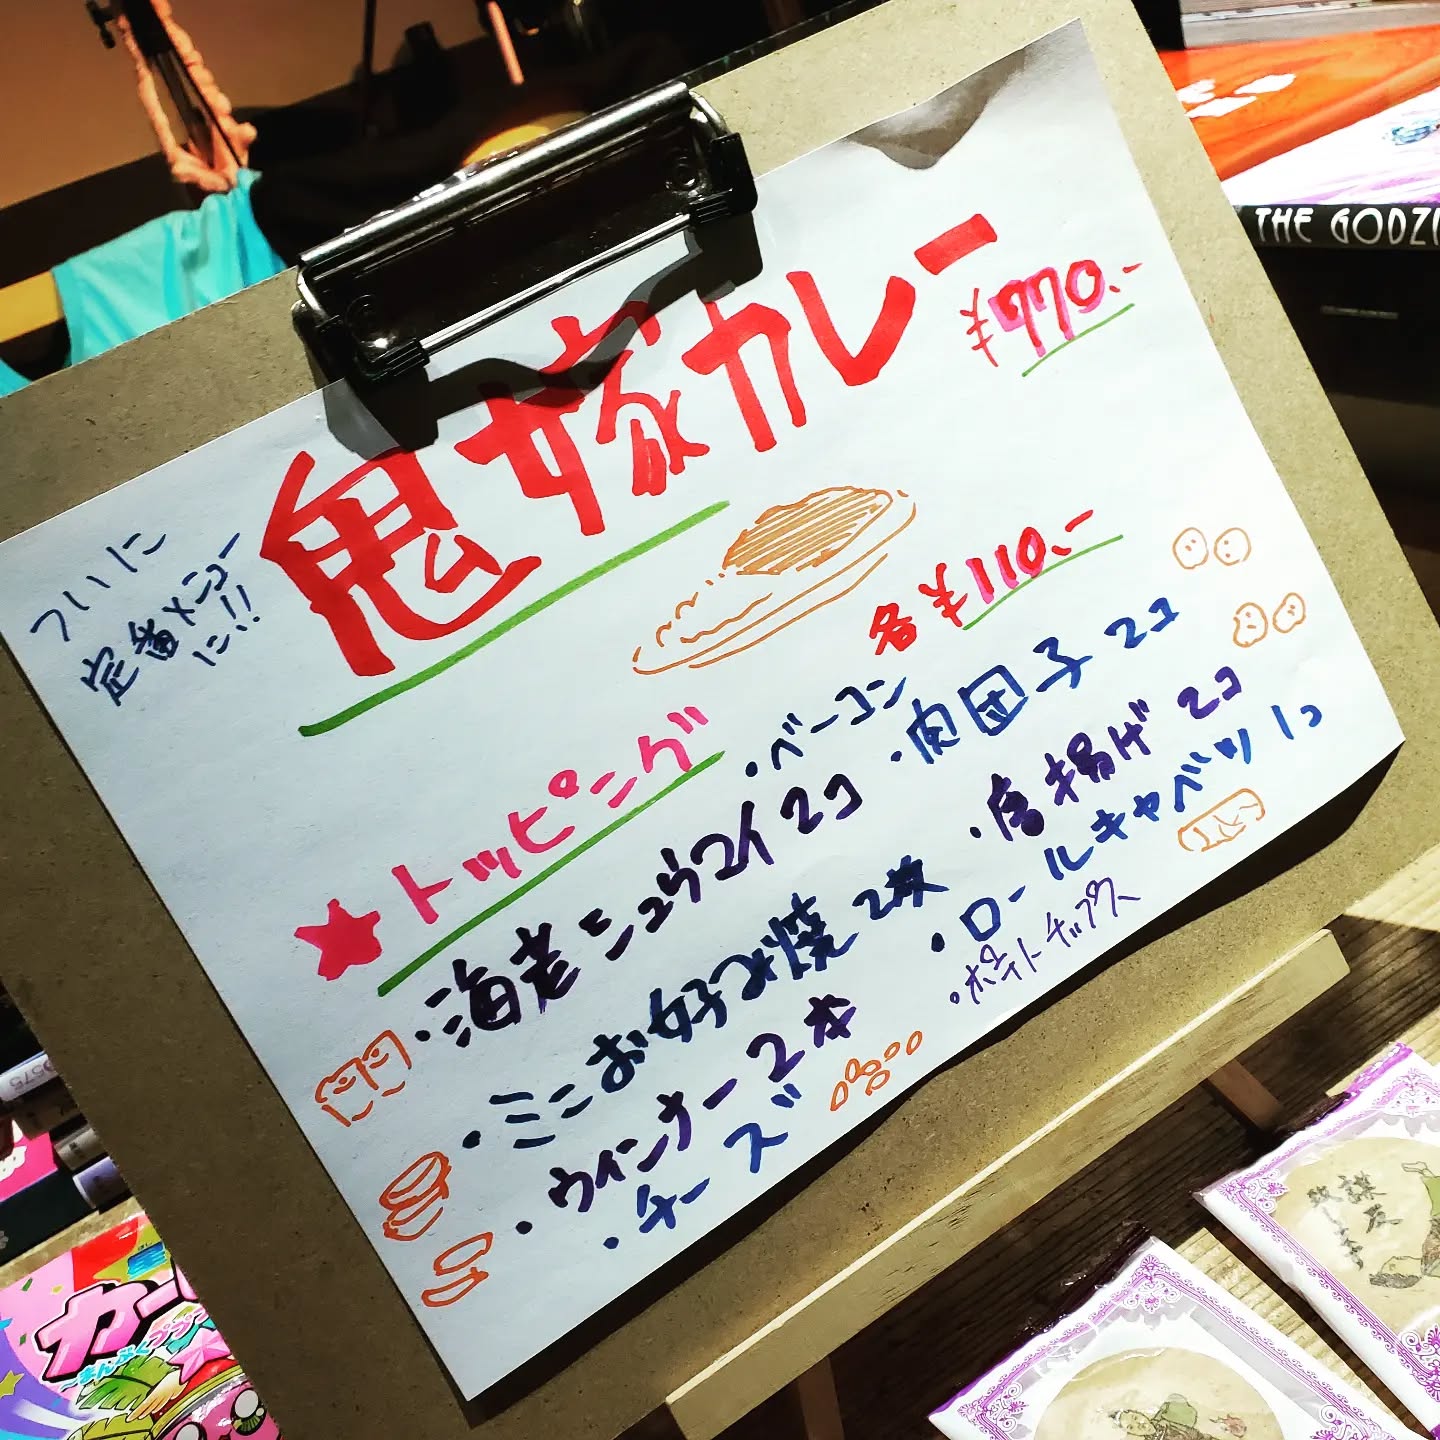 鬼嫁カレー
¥770.-
ついに
定番メニュー
に!!
★トッピング
各¥110.-
・ベーコン
・海老シュウマイ2コ
・肉団子2コ
・ミニお好み焼2枚
・唐揚げ2コ
・ウインナー2本
・ロールキャベツ1コ
・チーズ
・ポテトチップス
THE GODZI
カー
〜まんぷくプププ
謀反